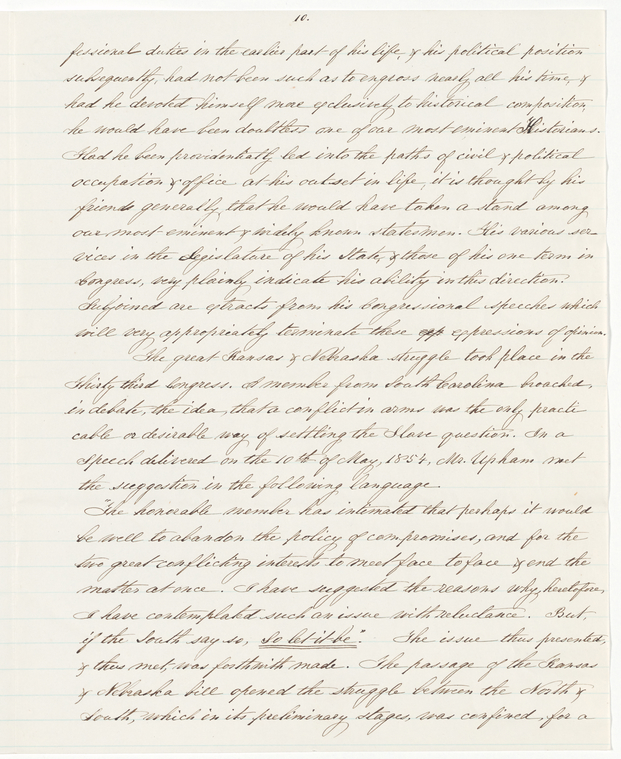 10.
fessional duties in the earlier part of his life, & his political position
subsequently, had not been such as to engross nearly all his time, &
had he devoted himself more exclusively to historical composition,
he would have been doubtless one of our most eminent Historians.
Had he been providentially led into the paths of civil & political
occupation & office at his outset in life, it is thought by his
friends generally, that he would have taken a stand among
our most eminent & widely known statesmen. His various ser-
vices in the Legislature of his State, & those of his one term in
Congress, very plainly indicate his ability in this direction.
Subjoined are extracts from his Congressional speeches which
will very appropriately terminate these expressions of opinion.
The great Kansas & Nebraska struggle took place in the
Thirty third Congress. A member from South Carolina broached,
in debate, the idea, that a conflict in arms was the only practi
cable or desirable way of settling the Slave question. In a
Speech delivered on the 10th of May, 1854, Mr. Upham met
the suggestion in the following language
"The honorable member has intimated that perhaps it would
be well to abandon the policy of compromises, and for the
two great conflicting interests to meet face to face & end the
matter at once. I have suggested the reasons why, heretofore,
I have contemplated such an issue with reluctance. But,
if the South say so, So let it be". The issue thus presented,
& thus met, was forthwith made. The passage of the Kansas
& Nebraska bill opened the struggle between the North &
South, which in its preliminary stages, was confined, for a